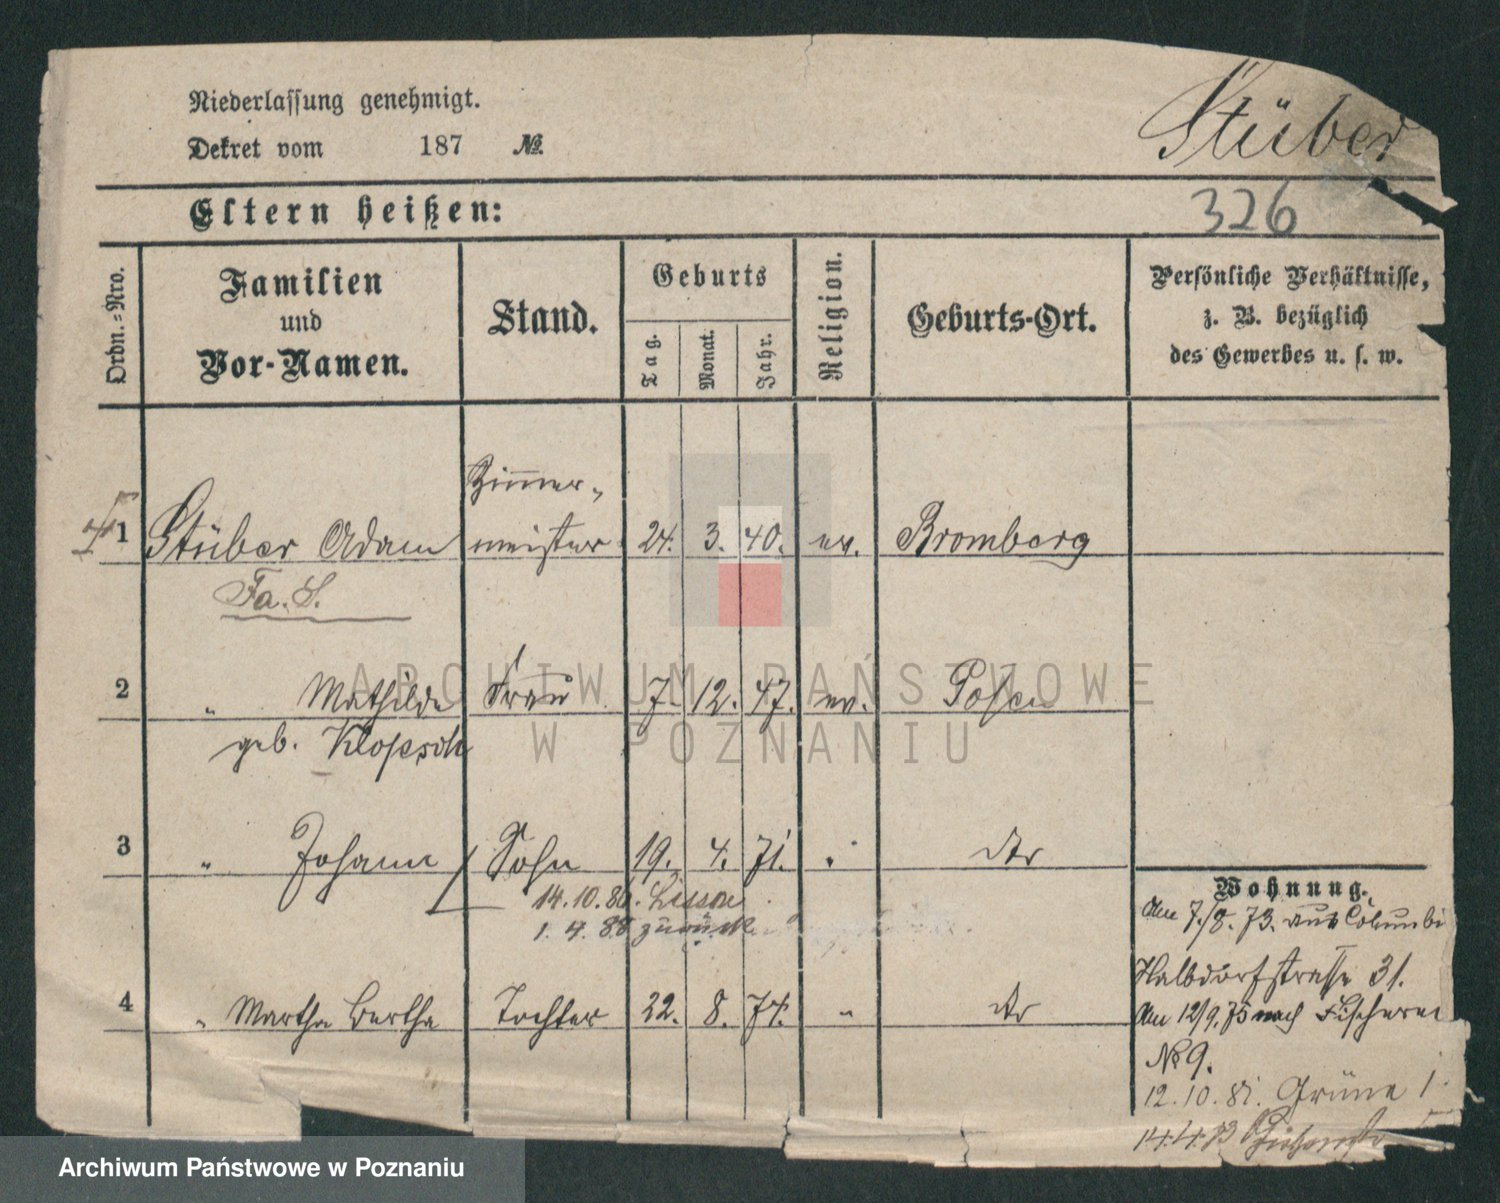 Niederlassung genehmigt.
Dekret vom 187 №
Stüber
326
Eltern heißen:
Ordn.-Nro.
Familien
und
Vor-Namen.
Stand.
Geburts
Tag.
Monat.
Jahr.
Religion.
Geburts-Ort.
Persönliche Verhältnisse,
z. B. bezüglich
des Gewerbes u. s. w.
Zimmer-
1 Stüber Adam meister 24. 3. 40. ev. Bromberg
Fa. S.
2 " Mathilde Frau 7. 12. 47. ev. Posen
geb. Klopsch
3 " Johann Sohn 19. 4. 71. " dto
14.10.86. Lissa
1. 4. 88 zurück
4 " Martha Bertha Tochter 22. 8. 74. " dto
Wohnung.
Am 7./8. 73. aus Columbi
Halbdorfstrasse 31.
Am 12/9. 75 nach Fischerei
№ 9.
12.10.81. Grüne 1
14.4.
ARCHIWUM PAŃSTWOWE
W POZNANIU
Archiwum Państwowe w Poznaniu